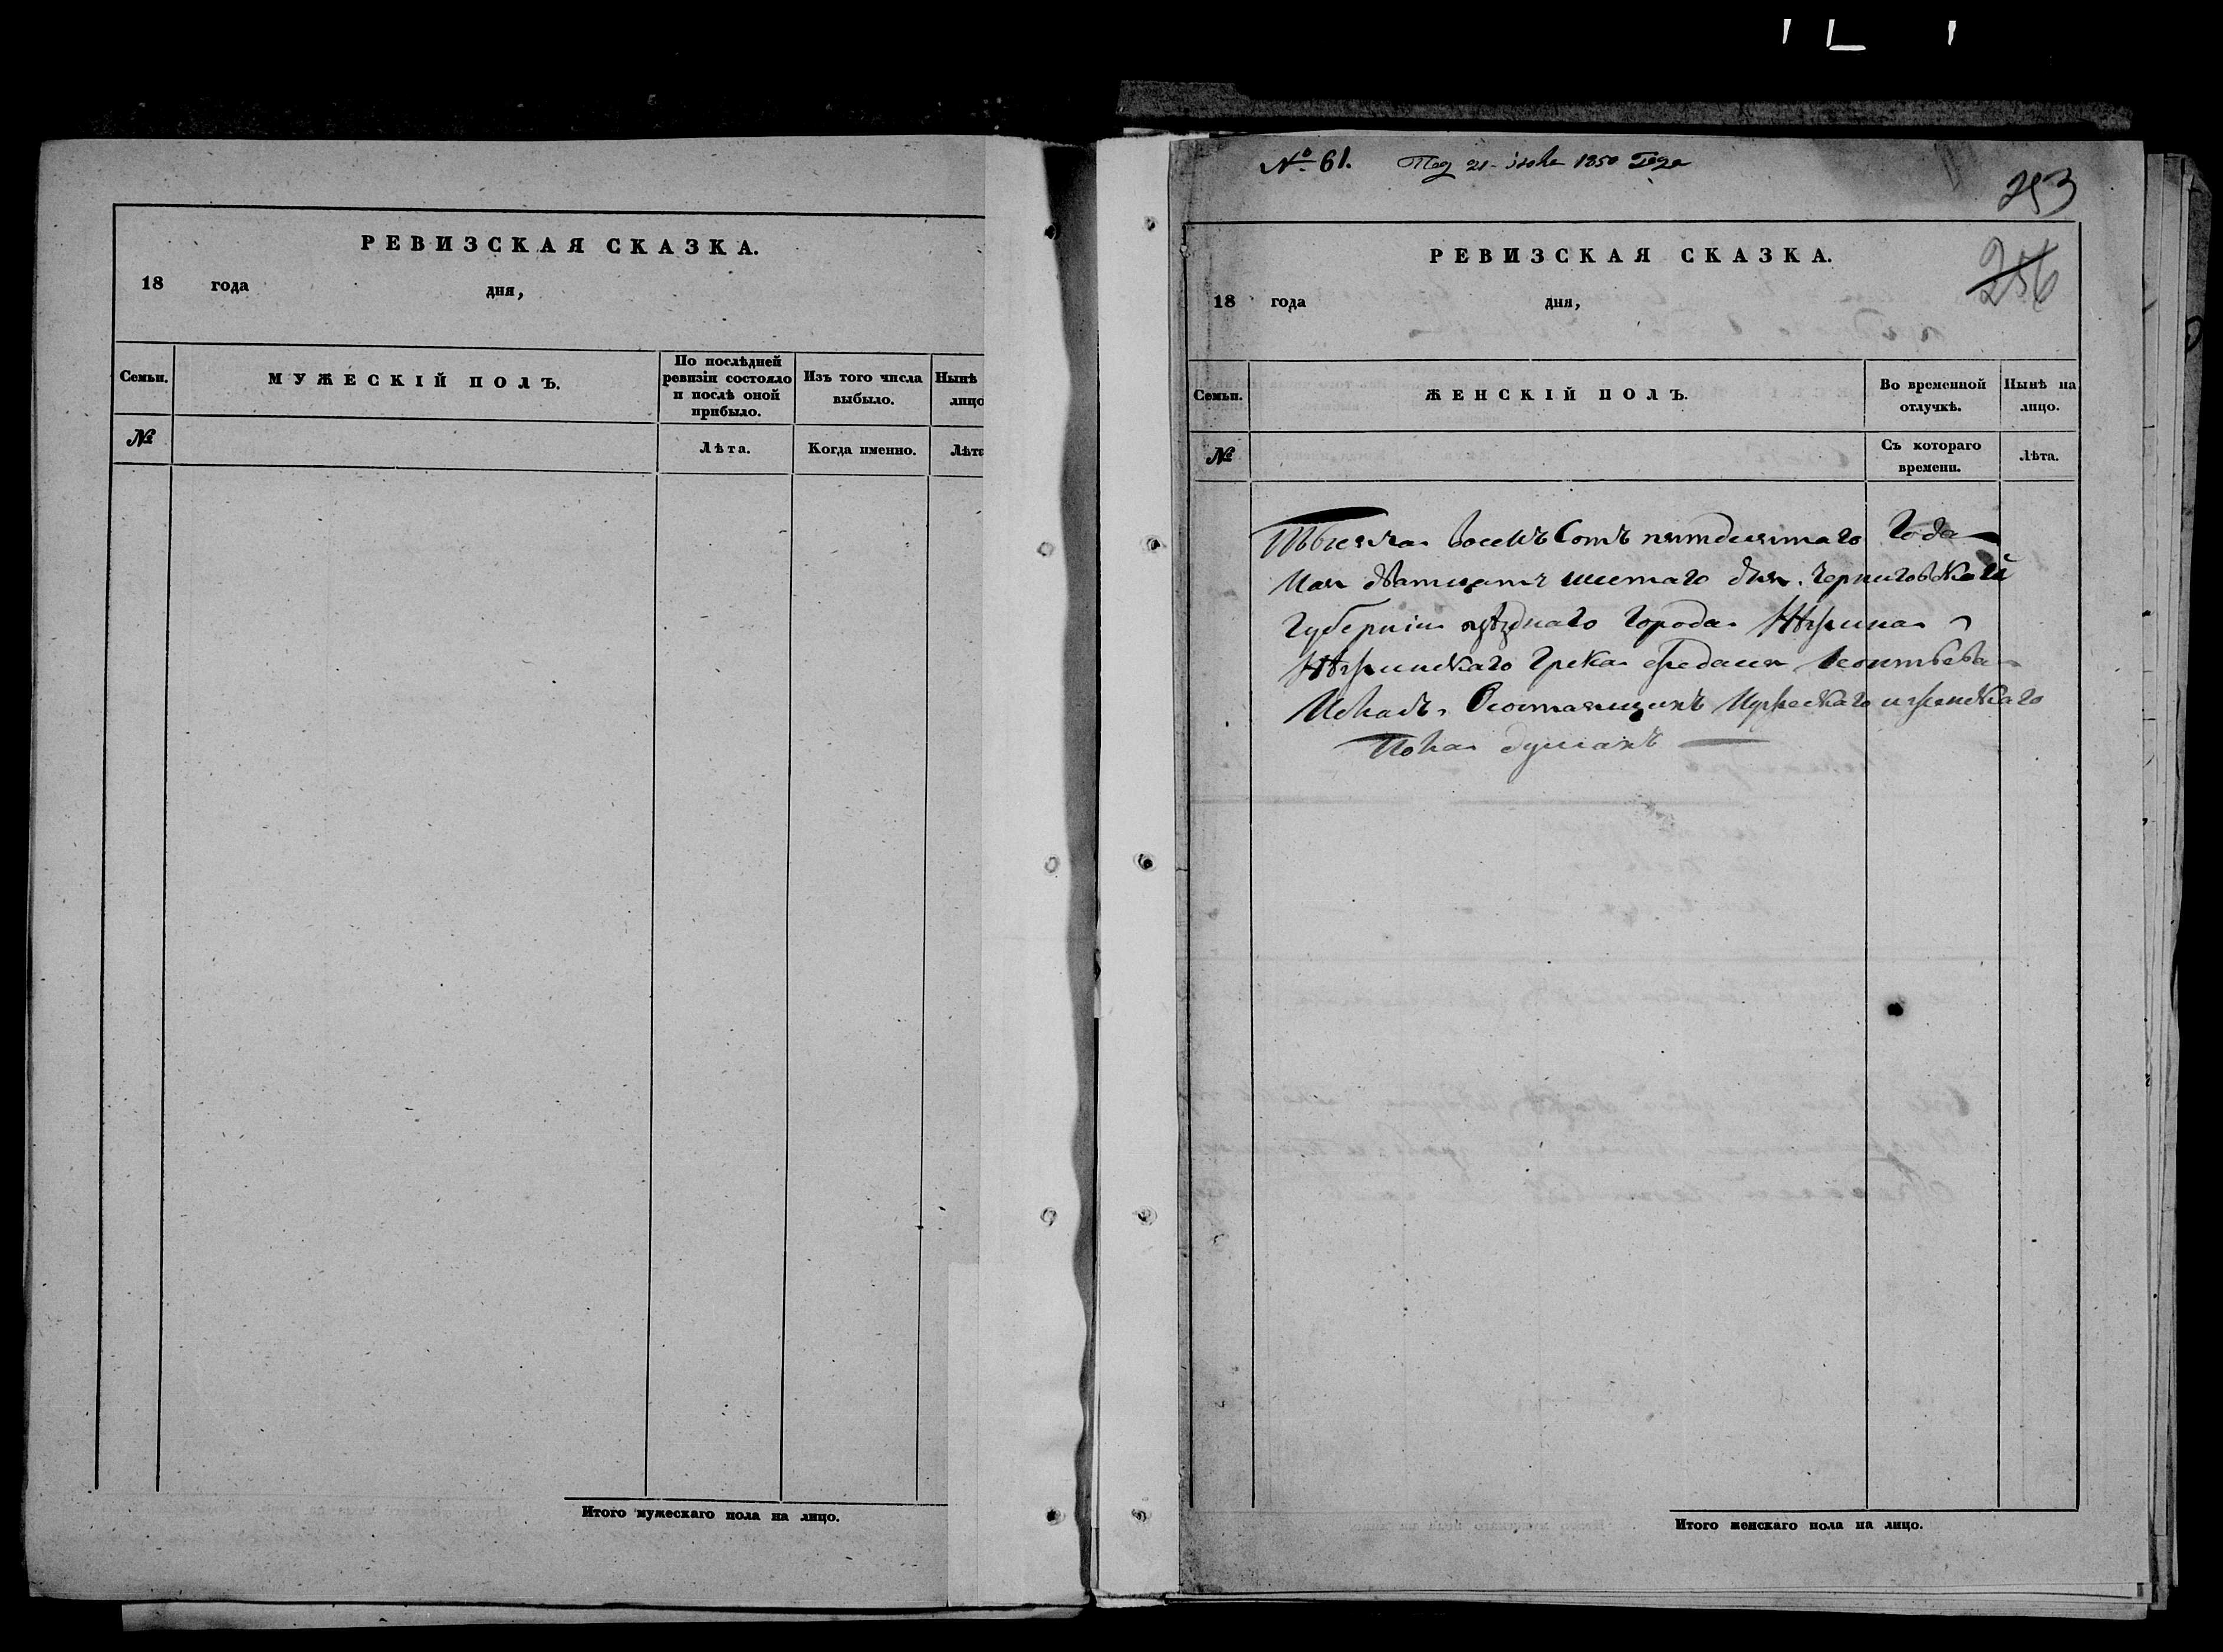 РЕВИЗСКАЯ СКАЗКА.
18 года дня,
Семьи.
МУЖЕСКІЙ ПОЛЪ.
По послѣдней ревизіи состояло и послѣ оной прибыло.
Изъ того числа выбыло.
Нынѣ лицо
№
Лѣта.
Когда именно.
Лѣта
Итого мужескаго пола на лицо.
№ 61. 21 1850 Года
253
256
РЕВИЗСКАЯ СКАЗКА.
18 года дня,
Семьи.
ЖЕНСКІЙ ПОЛЪ.
Во временной отлучкѣ.
Нынѣ на лицо.
№
Съ котораго времени.
Лѣта.
Тысяча восемъ Сотъ пятдесятаго Года
Мая дватцать шестаго дня. Черниговской
Губерніи уѣзднаго Города Нѣжина
Нѣжинскаго Грека Леонтьева
О состоящихъ Мужескаго и женскаго
Пола душахъ
Итого женскаго пола на лицо.